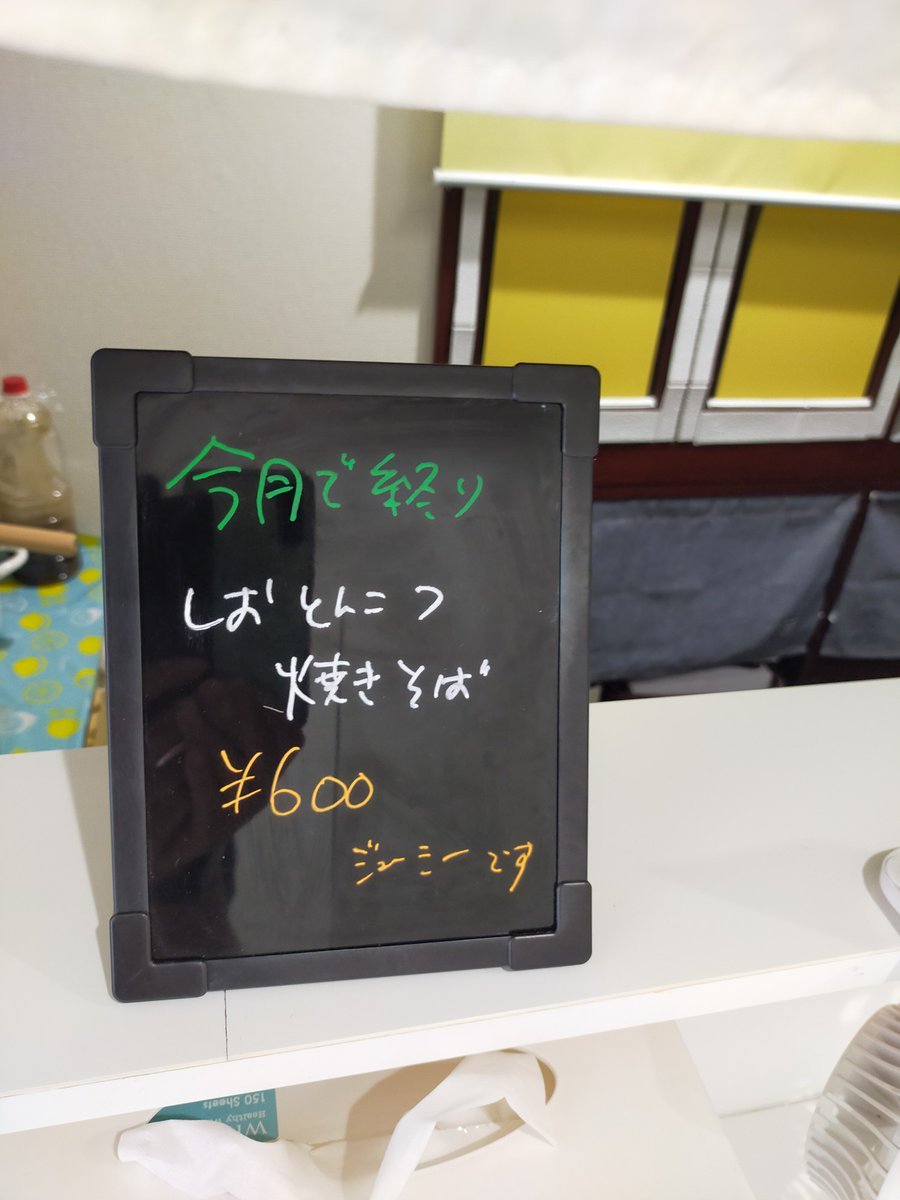 今月で終り
しおとんこつ
焼きそば
¥600
ジューミーです
150 Sheets